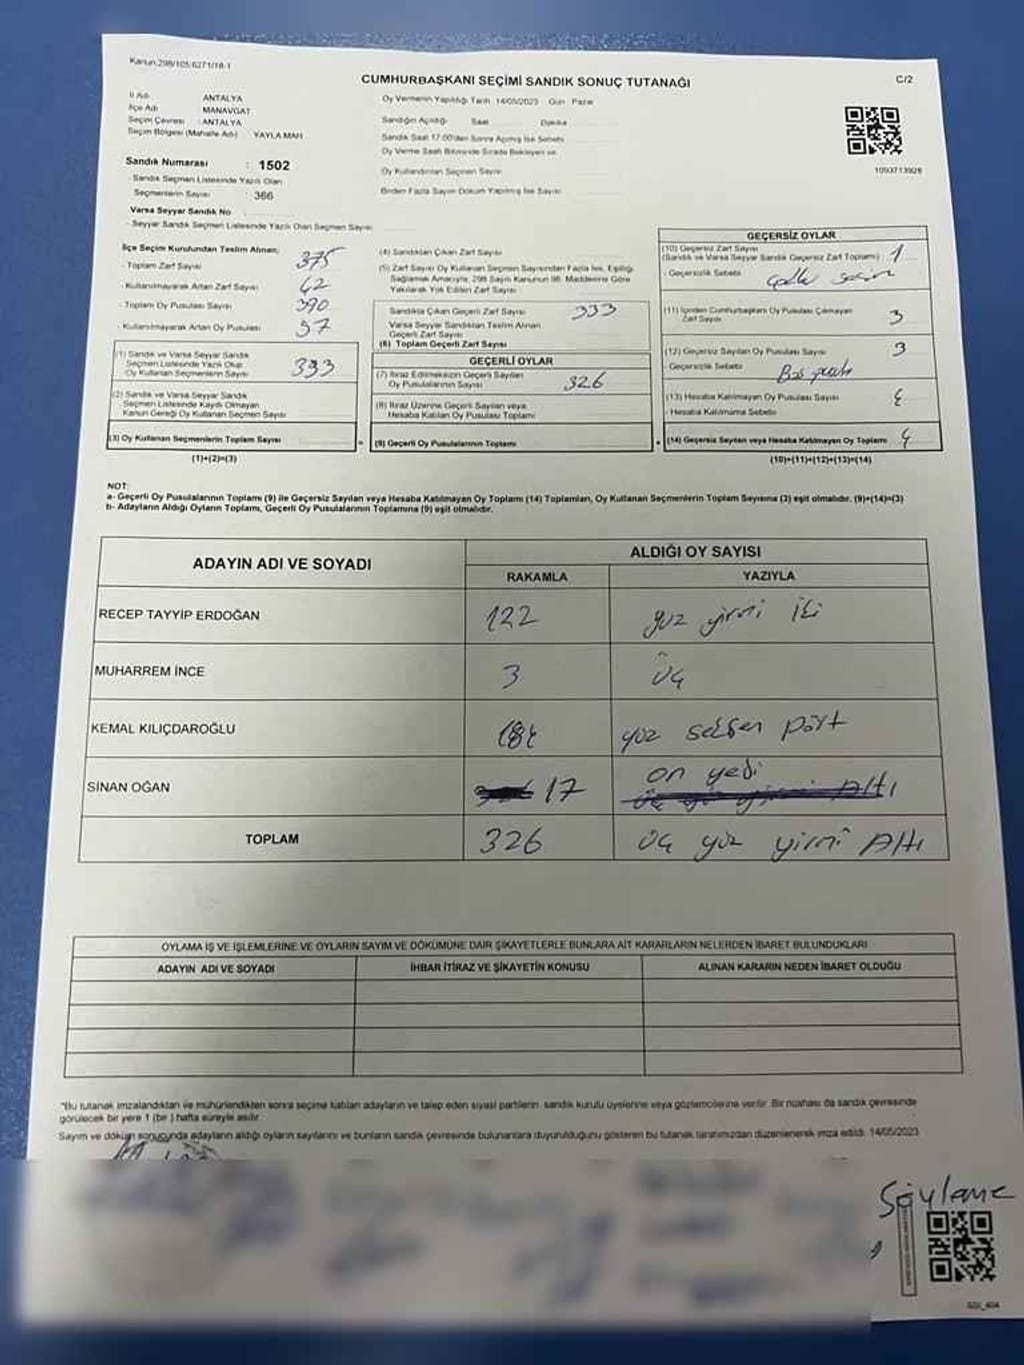 Kanun:298/105;6271/18-1
CUMHURBAŞKANI SEÇİMİ SANDIK SONUÇ TUTANAĞI
C/2
İl Adı ANTALYA
İlçe Adı MANAVGAT
Seçim Çevresi : ANTALYA
Seçim Bölgesi (Mahalle Adı) YAYLA MAH
Sandık Numarası : 1502
- Sandık Seçmen Listesinde Yazılı Olan
Seçmenlerin Sayısı : 366
Varsa Seyyar Sandık No
- Seyyar Sandık Seçmen Listesinde Yazılı Olan Seçmen Sayısı
Oy Vermenin Yapıldığı Tarih 14/05/2023 Gün Pazar
Sandığın Açıldığı Saat Dakika
Sandık Saat 17:00'den Sonra Açılmış İse Sebebi
Oy Verme Saati Bitiminde Sırada Bekleyen ve
Oy Kullandırılan Seçmen Sayısı
Birden Fazla Sayım Döküm Yapılmış İse Sayısı
1093713928
İlçe Seçim Kurulundan Teslim Alınan;
- Toplam Zarf Sayısı 375
- Kullanılmayarak Artan Zarf Sayısı 42
- Toplam Oy Pusulası Sayısı 390
- Kullanılmayarak Artan Oy Pusulası 57
(1) Sandık ve Varsa Seyyar Sandık
Seçmen Listesinde Yazılı Olup
Oy Kullanan Seçmenlerin Sayısı 333
(2) Sandık ve Varsa Seyyar Sandık
Seçmen Listesinde Kayıtlı Olmayan
Kanun Gereği Oy Kullanan Seçmen Sayısı
(3) Oy Kullanan Seçmenlerin Toplam Sayısı =
(1)+(2)=(3)
(4) Sandıktan Çıkan Zarf Sayısı
(5) Zarf Sayısı Oy Kullanan Seçmen Sayısından Fazla İse, Eşitliği
Sağlamak Amacıyla, 298 Sayılı Kanunun 98. Maddesine Göre
Yakılarak Yok Edilen Zarf Sayısı
Sandıkta Çıkan Geçerli Zarf Sayısı 333
Varsa Seyyar Sandıktan Teslim Alınan
Geçerli Zarf Sayısı
(6) Toplam Geçerli Zarf Sayısı
GEÇERLİ OYLAR
(7) İtiraz Edilmeksizin Geçerli Sayılan
Oy Pusulalarının Sayısı 326
(8) İtiraz Üzerine Geçerli Sayılan veya
Hesaba Katılan Oy Pusulası Toplamı
(9) Geçerli Oy Pusulalarının Toplamı +
GEÇERSİZ OYLAR
(10) Geçersiz Zarf Sayısı
(Sandık ve Varsa Seyyar Sandık Geçersiz Zarf Toplamı) 1
- Geçersizlik Sebebi
(11) İçinden Cumhurbaşkanı Oy Pusulası Çıkmayan
Zarf Sayısı 3
(12) Geçersiz Sayılan Oy Pusulası Sayısı 3
- Geçersizlik Sebebi Boş
(13) Hesaba Katılmayan Oy Pusulası Sayısı
- Hesaba Katılmama Sebebi
(14) Geçersiz Sayılan veya Hesaba Katılmayan Oy Toplamı 4
(10)+(11)+(12)+(13)=(14)
NOT:
a- Geçerli Oy Pusulalarının Toplamı (9) ile Geçersiz Sayılan veya Hesaba Katılmayan Oy Toplamı (14) Toplamları, Oy Kullanan Seçmenlerin Toplam Sayısına (3) eşit olmalıdır. (9)+(14)=(3)
b- Adayların Aldığı Oyların Toplamı, Geçerli Oy Pusulalarının Toplamına (9) eşit olmalıdır.
ADAYIN ADI VE SOYADI
ALDIĞI OY SAYISI
RAKAMLA YAZIYLA
RECEP TAYYİP ERDOĞAN 122 yüz yirmi iki
MUHARREM İNCE 3 üç
KEMAL KILIÇDAROĞLU 184 yüz seksen dört
SİNAN OĞAN 17 on yedi
üç yüz yirmi Altı
TOPLAM 326 üç yüz yirmi Altı
OYLAMA İŞ VE İŞLEMLERİNE VE OYLARIN SAYIM VE DÖKÜMÜNE DAİR ŞİKAYETLERLE BUNLARA AİT KARARLARIN NELERDEN İBARET BULUNDUKLARI
ADAYIN ADI VE SOYADI İHBAR İTİRAZ VE ŞİKAYETİN KONUSU ALINAN KARARIN NEDEN İBARET OLDUĞU
"Bu tutanak imzalandıktan ve mühürlendikten sonra seçime katılan adayların ve talep eden siyasi partilerin sandık kurulu üyelerine veya gözlemcilerine verilir. Bir nüshası da sandık çevresinde
görülecek bir yere 1 (bir) hafta süreyle asılır.
Sayım ve döküm sonucunda adayların aldığı oyların sayılarını ve bunların sandık çevresinde bulunanlara duyurulduğunu gösteren bu tutanak tarafımızdan düzenlenerek imza edildi. 14/05/2023
Söyleme